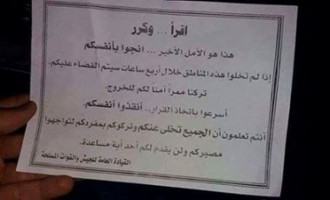 اقرأ ... وكرر
هذا هو الأمل الأخير ... انجوا بأنفسكم
إذا لم تخلوا هذه المناطق خلال أربع ساعات سيتم القضاء عليكم.
تركنا ممراً آمناً لكم للخروج.
أسرعوا باتخاذ القرار.. أنقذوا أنفسكم.
أنتم تعلمون أن الجميع تخلى عنكم وتركوكم بمفردكم لتواجهوا
مصيركم ولن يقدم لكم أحد أية مساعدة.
القيادة العامة للجيش والقوات المسلحة